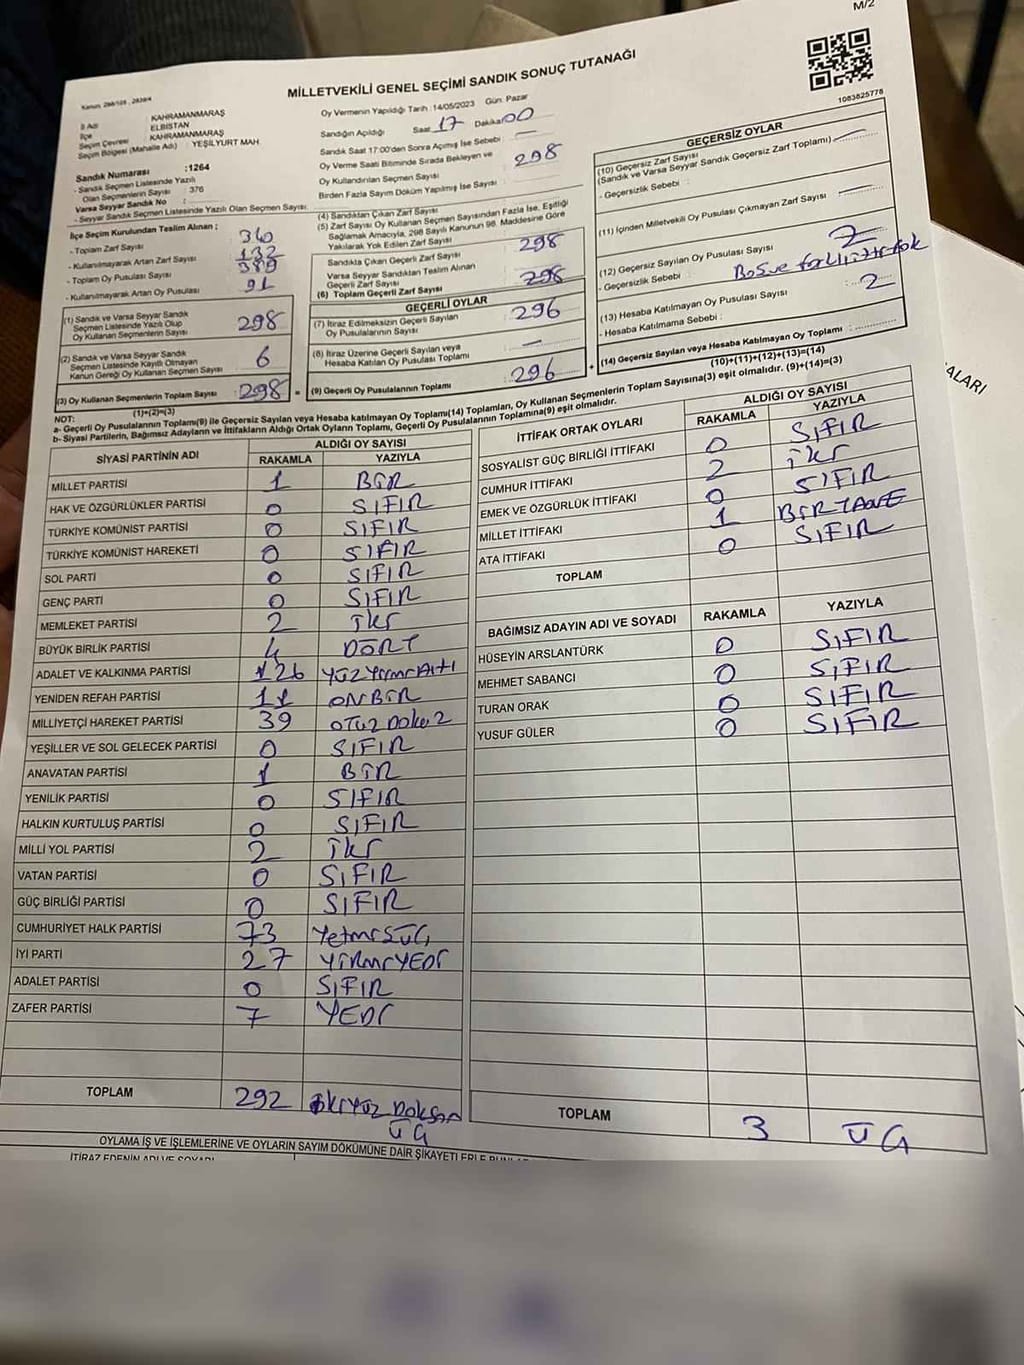 M/2
MİLLETVEKİLİ GENEL SEÇİMİ SANDIK SONUÇ TUTANAĞI
1083825778
İl Adı : KAHRAMANMARAŞ
İlçe : ELBİSTAN
Seçim Çevresi : KAHRAMANMARAŞ
Seçim Bölgesi (Mahalle Adı) : YEŞİLYURT MAH.
Sandık Numarası :1264
- Sandık Seçmen Listesinde Yazılı
Olan Seçmenlerin Sayısı : 376
Varsa Seyyar Sandık No :
- Seyyar Sandık Seçmen Listesinde Yazılı Olan Seçmen Sayısı:
Oy Vermenin Yapıldığı Tarih :14/05/2023 Gün: Pazar
Sandığın Açıldığı Saat 17 Dakika 00
Sandık Saat 17:00'den Sonra Açımış İse Sebebi : —
Oy Verme Saati Bitiminde Sırada Bekleyen ve
Oy Kullandırılan Seçmen Sayısı 298
Birden Fazla Sayım Döküm Yapılmış İse Sayısı :
İlçe Seçim Kurulundan Teslim Alınan ;
- Toplam Zarf Sayısı 340
- Kullanılmayarak Artan Zarf Sayısı 132
- Toplam Oy Pusulası Sayısı 389
- Kullanılmayarak Artan Oy Pusulası 91
(1) Sandık ve Varsa Seyyar Sandık
Seçmen Listesinde Yazılı Olup
Oy Kullanan Seçmenlerin Sayısı 298
(2) Sandık ve Varsa Seyyar Sandık
Seçmen Listesinde Kayıtlı Olmayan
Kanun Gereği Oy Kullanan Seçmen Sayısı 6
(3) Oy Kullanan Seçmenlerin Toplam Sayısı 298
(1)+(2)=(3)
(4) Sandıktan Çıkan Zarf Sayısı
(5) Zarf Sayısı Oy Kullanan Seçmen Sayısından Fazla İse, Eşitliği
Sağlamak Amacıyla, 298 Sayılı Kanunun 98. Maddesine Göre
Yakılarak Yok Edilen Zarf Sayısı
Sandıkta Çıkan Geçerli Zarf Sayısı 298
Varsa Seyyar Sandıktan Teslim Alınan
Geçerli Zarf Sayısı
(6) Toplam Geçerli Zarf Sayısı 298
GEÇERLİ OYLAR
(7) İtiraz Edilmeksizin Geçerli Sayılan
Oy Pusulalarının Sayısı 296
(8) İtiraz Üzerine Geçerli Sayılan veya
Hesaba Katılan Oy Pusulası Toplamı —
= (9) Geçerli Oy Pusulalarının Toplamı 296 +
GEÇERSİZ OYLAR
(10) Geçersiz Zarf Sayısı
(Sandık ve Varsa Seyyar Sandık Geçersiz Zarf Toplamı) —
- Geçersizlik Sebebi :
(11) İçinden Milletvekili Oy Pusulası Çıkmayan Zarf Sayısı —
(12) Geçersiz Sayılan Oy Pusulası Sayısı 2
- Geçersizlik Sebebi :
(13) Hesaba Katılmayan Oy Pusulası Sayısı 2
- Hesaba Katılmama Sebebi :
(14) Geçersiz Sayılan veya Hesaba Katılmayan Oy Toplamı :
(10)+(11)+(12)+(13)=(14)
NOT:
a- Geçerli Oy Pusulalarının Toplamı(9) ile Geçersiz Sayılan veya Hesaba katılmayan Oy Toplamı(14) Toplamları, Oy Kullanan Seçmenlerin Toplam Sayısına(3) eşit olmalıdır. (9)+(14)=(3)
b- Siyasi Partilerin, Bağımsız Adayların ve İttifakların Aldığı Ortak Oyların Toplamı, Geçerli Oy Pusulalarının Toplamına(9) eşit olmalıdır.
SİYASİ PARTİNİN ADI ALDIĞI OY SAYISI
RAKAMLA YAZIYLA
MİLLET PARTİSİ 1 BİR
HAK VE ÖZGÜRLÜKLER PARTİSİ 0 SIFIR
TÜRKİYE KOMÜNİST PARTİSİ 0 SIFIR
TÜRKİYE KOMÜNİST HAREKETİ 0 SIFIR
SOL PARTİ 0 SIFIR
GENÇ PARTİ 0 SIFIR
MEMLEKET PARTİSİ 2 İki
BÜYÜK BİRLİK PARTİSİ 4 DÖRT
ADALET VE KALKINMA PARTİSİ 126 YÜZ YirmiAltı
YENİDEN REFAH PARTİSİ 11 ONBİR
MİLLİYETÇİ HAREKET PARTİSİ 39 OTUZ Dokuz
YEŞİLLER VE SOL GELECEK PARTİSİ 0 SIFIR
ANAVATAN PARTİSİ 1 BİR
YENİLİK PARTİSİ 0 SIFIR
HALKIN KURTULUŞ PARTİSİ 0 SIFIR
MİLLİ YOL PARTİSİ 2 İki
VATAN PARTİSİ 0 SIFIR
GÜÇ BİRLİĞİ PARTİSİ 0 SIFIR
CUMHURİYET HALK PARTİSİ 73 YetmişÜÇ
İYİ PARTİ 27 YİRMİYEDİ
ADALET PARTİSİ 0 SIFIR
ZAFER PARTİSİ 7 YEDİ
TOPLAM 292 İkiYüz Doksan
ÜÇ
İTTİFAK ORTAK OYLARI ALDIĞI OY SAYISI
RAKAMLA YAZIYLA
SOSYALİST GÜÇ BİRLİĞİ İTTİFAKI 0 SIFIR
CUMHUR İTTİFAKI 2 İki
EMEK VE ÖZGÜRLÜK İTTİFAKI 0 SIFIR
MİLLET İTTİFAKI 1 BİR TANE
ATA İTTİFAKI 0 SIFIR
TOPLAM
BAĞIMSIZ ADAYIN ADI VE SOYADI RAKAMLA YAZIYLA
HÜSEYİN ARSLANTÜRK 0 SIFIR
MEHMET SABANCI 0 SIFIR
TURAN ORAK 0 SIFIR
YUSUF GÜLER 0 SIFIR
TOPLAM 3 ÜÇ
OYLAMA İŞ VE İŞLEMLERİNE VE OYLARIN SAYIM DÖKÜMÜNE DAİR ŞİKAYETLERLE
İTİRAZ EDENİN ADI VE SOYADI
ALARI